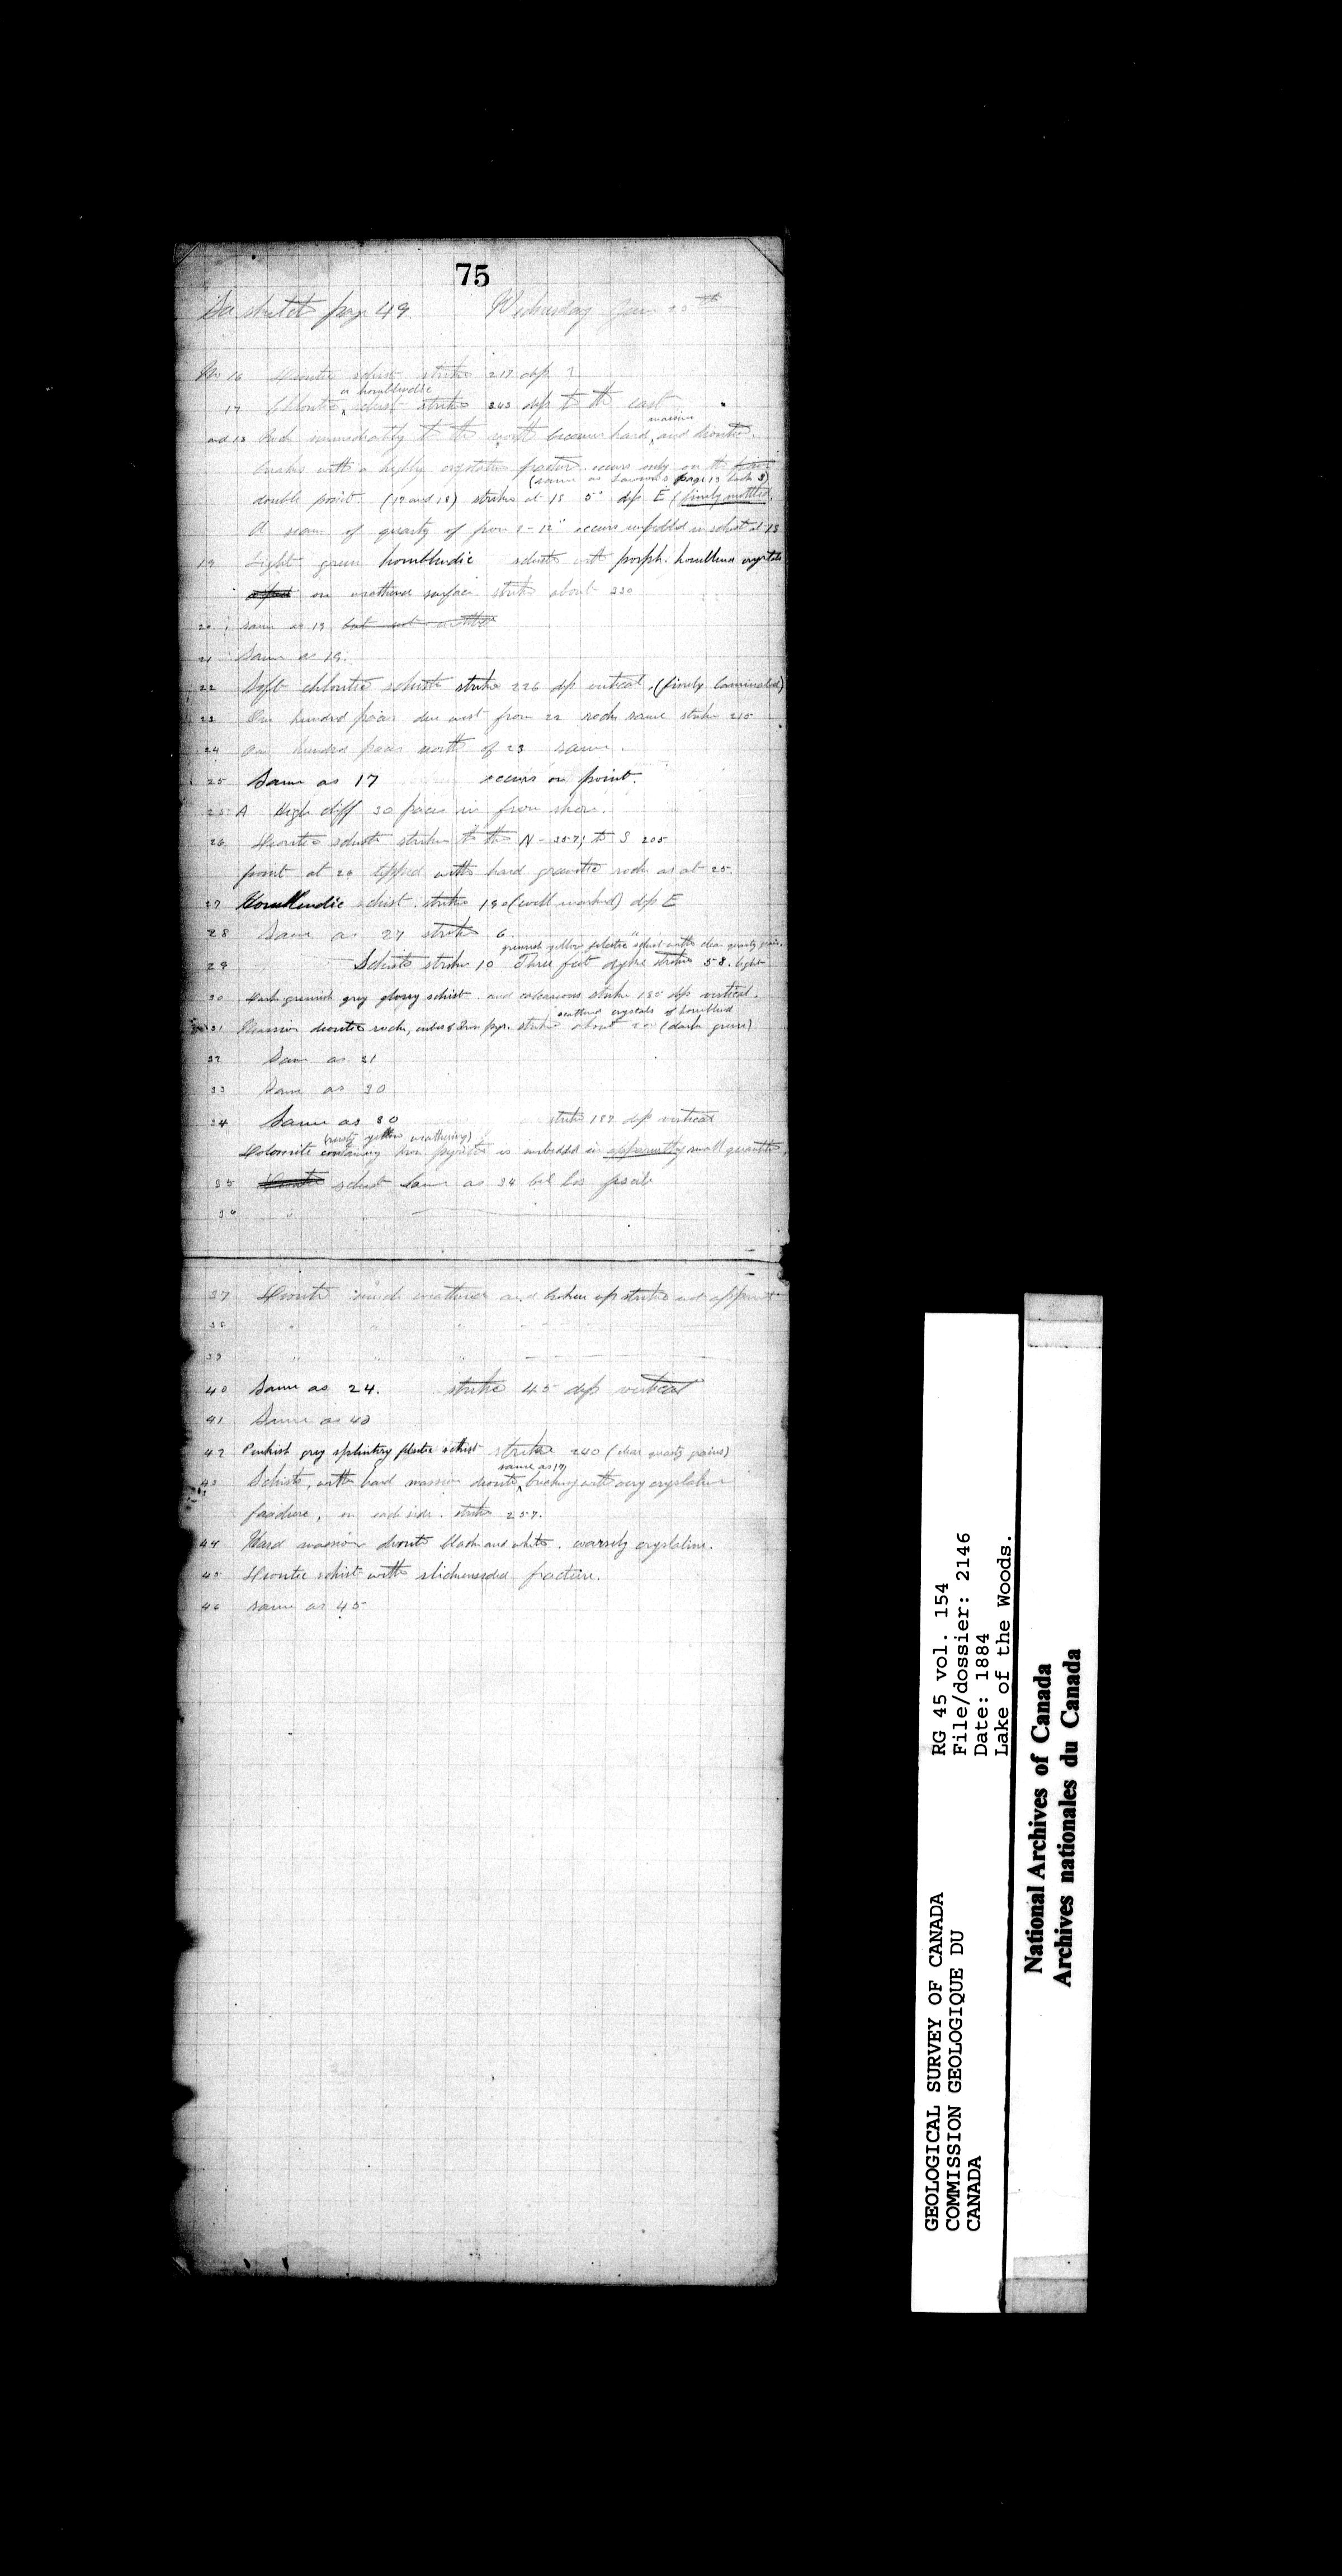 75
See sketch page 49. Wednesday June 25th
No 16 Dioritic schist strike 217 dip ?
or hornblendic
17 Chloritic schist strike 343 dip to the east
massive
and 18 Rock immediately to the north becomes hard and dioritic.
breaks with a highly crystalline fracture. occurs only on the
(same as Lawson's page 13 book 3)
double point. (17 and 18) strike at 18 5° dip E (finely mottled.
A seam of quartz of from 8-12" occurs imbedded in schist at 18
19 Light green hornblendic schists with porph. hornblend crystals
on weathered surface strike about 330
20 same as 19 but not
21 Same as 19.
22 Soft chloritic schists strike 226 dip vertical. (finely laminated)
23 One hundred paces due west from 22 rocks same strike 215
24 One hundred paces north of 23 same.
25 Same as 17 occurs on point.
25 A High cliff 30 paces in from shore.
26 Dioritic schists strike to the N - 357; to S 205
point at 26 tipped with hard rock as at 25.
27 Hornblendic schist. strike 190 (well marked) dip E
28 Same as 27 strike 6.
greenish yellow felsitic schist with clear quartz grains.
29 Schists strike 10 Three feet dyke strike 58. light
30 Dark greenish grey glossy schist. and calcareous strike 180 dip vertical.
scattered crystals of hornblend
31 Massive dioritic rocks, cubes of iron pyr. strike about 20 (dark green)
32 Same as 31
33 Same as 30
34 Same as 30 strike 187 dip vertical
(rusty yellow weathering)
Dolomite containing iron pyrites is imbedded in apparently small quantities.
35 schist same as 34 but less fissile
36 "
37 Diorite much weathered and broken up strike not apparent
38 " " "
39 " " "
40 Same as 24. strike 45 dip vertical
41 Same as 40
42 Pinkish grey splintery felsitic schist strike 240 (clear quartz grains)
same as 17
43 Schists, with hard massive diorite, breaking with very crystaline
fracture, on each side. strike 257.
44 Hard massive diorite black and white. coarsely crystaline.
45 Dioritic schist with slickensided fracture.
46 same as 45
RG 45 vol. 154
File/dossier: 2146
Date: 1884
Lake of the Woods.
GEOLOGICAL SURVEY OF CANADA
COMMISSION GEOLOGIQUE DU
CANADA
National Archives of Canada
Archives nationales du Canada